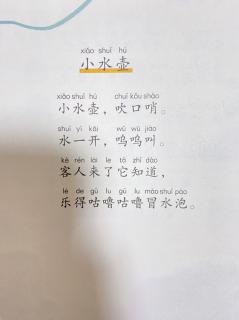 xiǎo shuǐ hú
小水壶
xiǎo shuǐ hú chuī kǒu shào
小水壶，吹口哨。
shuǐ yì kāi wū wū jiào
水一开，呜呜叫。
kè rén lái le tā zhī dào
客人来了它知道，
lè de gū lu gū lu mào shuǐ pào
乐得咕噜咕噜冒水泡。